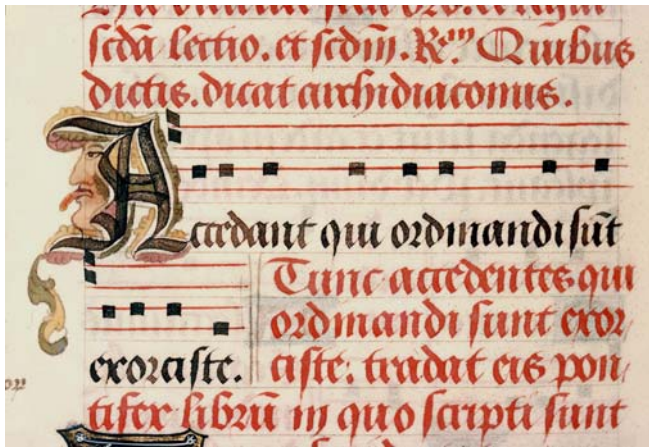 scđa lectio. et scđm. Rᵉᵐ. Quibus
dictis. dicat archidiaconus.
Accedant qui ordinandi sūt
exorciste.
Tunc accedentes qui
ordinandi sunt exor
ciste: tradat eis pon
tifex librū in quo scripti sunt